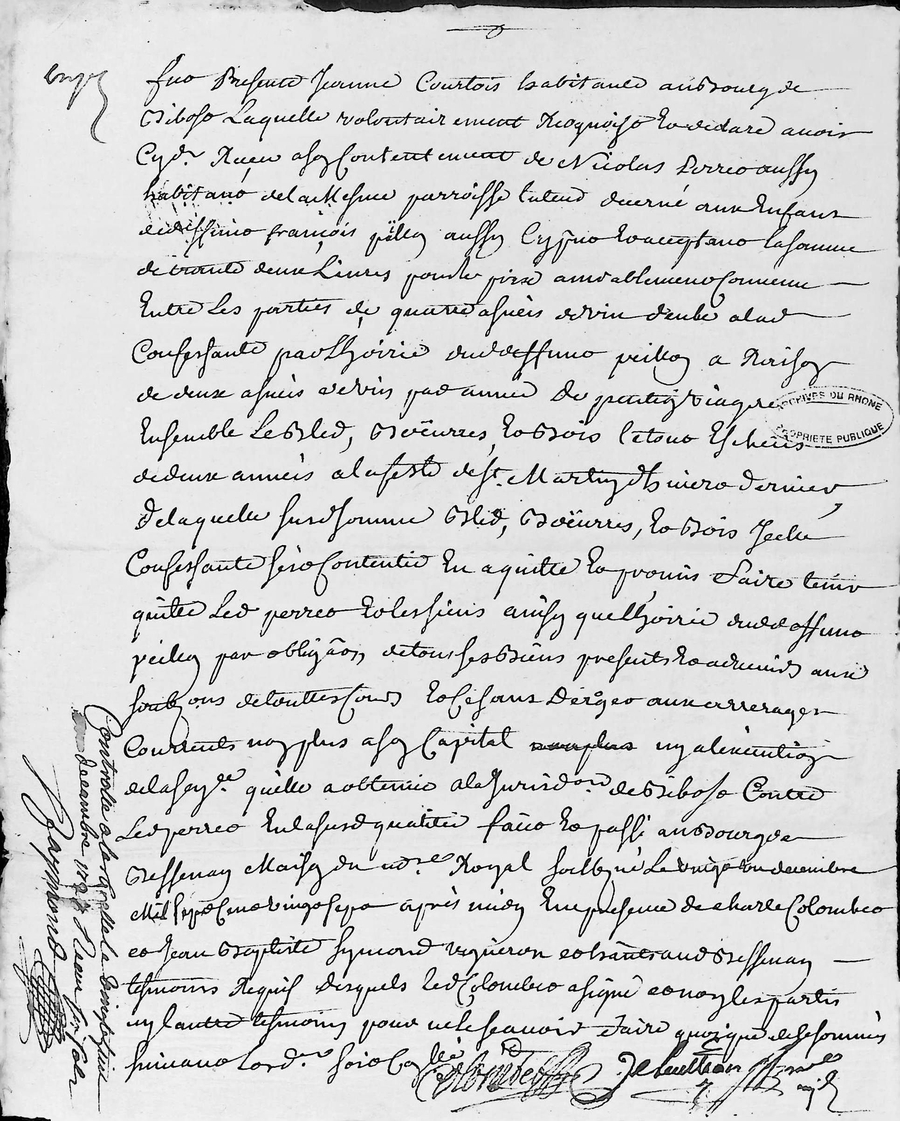 fut Presente Jeanne Courtois habitante au Bourg de
Bibost Laquelle volontairement Recognoist et declare avoir
Cyd.t Receu a son Contentement de Nicolas Perret aussy
habitant de la mesme parroisse tuteur decerné aux Enfans
de deffunt françois pilloy aussy Cy pnt et acceptant la somme
de trente deux Livres pour le prix amiablement Convenu
Entre Les parties de quatre asnées de vin deube a lad
Confessante par Lhoirie dud deffunt a Raison
de deux asnées de vin par année de pention viagere
Ensemble Le Bled, Beurres, et Bois le tout Escheus
de deux années a la feste de St. Martin d'hiver Dernier
De laquelle susd somme Bled, Beurres, et Bois Icelle
Confessante sest Contentée En a quitté et promis faire tenir
quitte Led perret et les siens ainsy que Lhoirie dud deffunt
par obligaon de tous ses Biens presents et advenirs aux
soubzons de touttes Cours et Ce sans Deroger aux arrerages
Courants non plus a son Capital ny a lexecution
de la sen.ce quelle a obtenue a la Jurisdon de Bibost Contre
Led perret En la susd qualité fait et passé au Bourg de
Bessenay Maison du no.re Royal soubsigné Le vingt un decembre
Mil sept Cent vingt sept apres midy En presence de Charle Colombet
et Jean Baptiste Symond vigneron habitants aud Bessenay
tesmoins Requis desquels Led Colombet a signé et non les parties
ny lautre tesmoin pour ne le scavoir faire quoique de ce sommés
suivant Lord.ce
Colombet
no.re
Controllé a la
decembre 1727 Receu six sols
Raymond
ARCHIVES DU RHONE
PROPRIETE PUBLIQUE